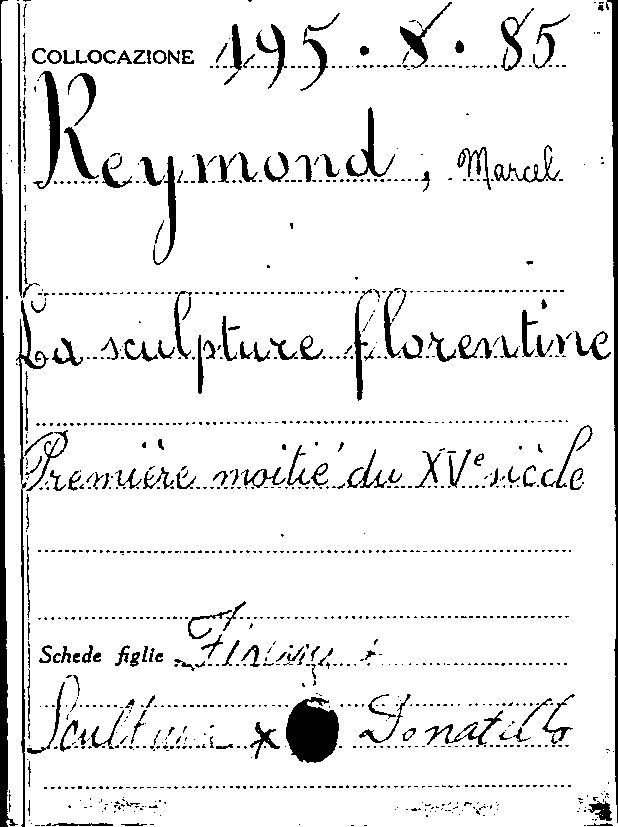 COLLOCAZIONE 195.8.85
Reymond, Marcel
La sculpture florentine
Première moitié du XVe siècle
Schede figlie Firenze +
Scultura x Donatello